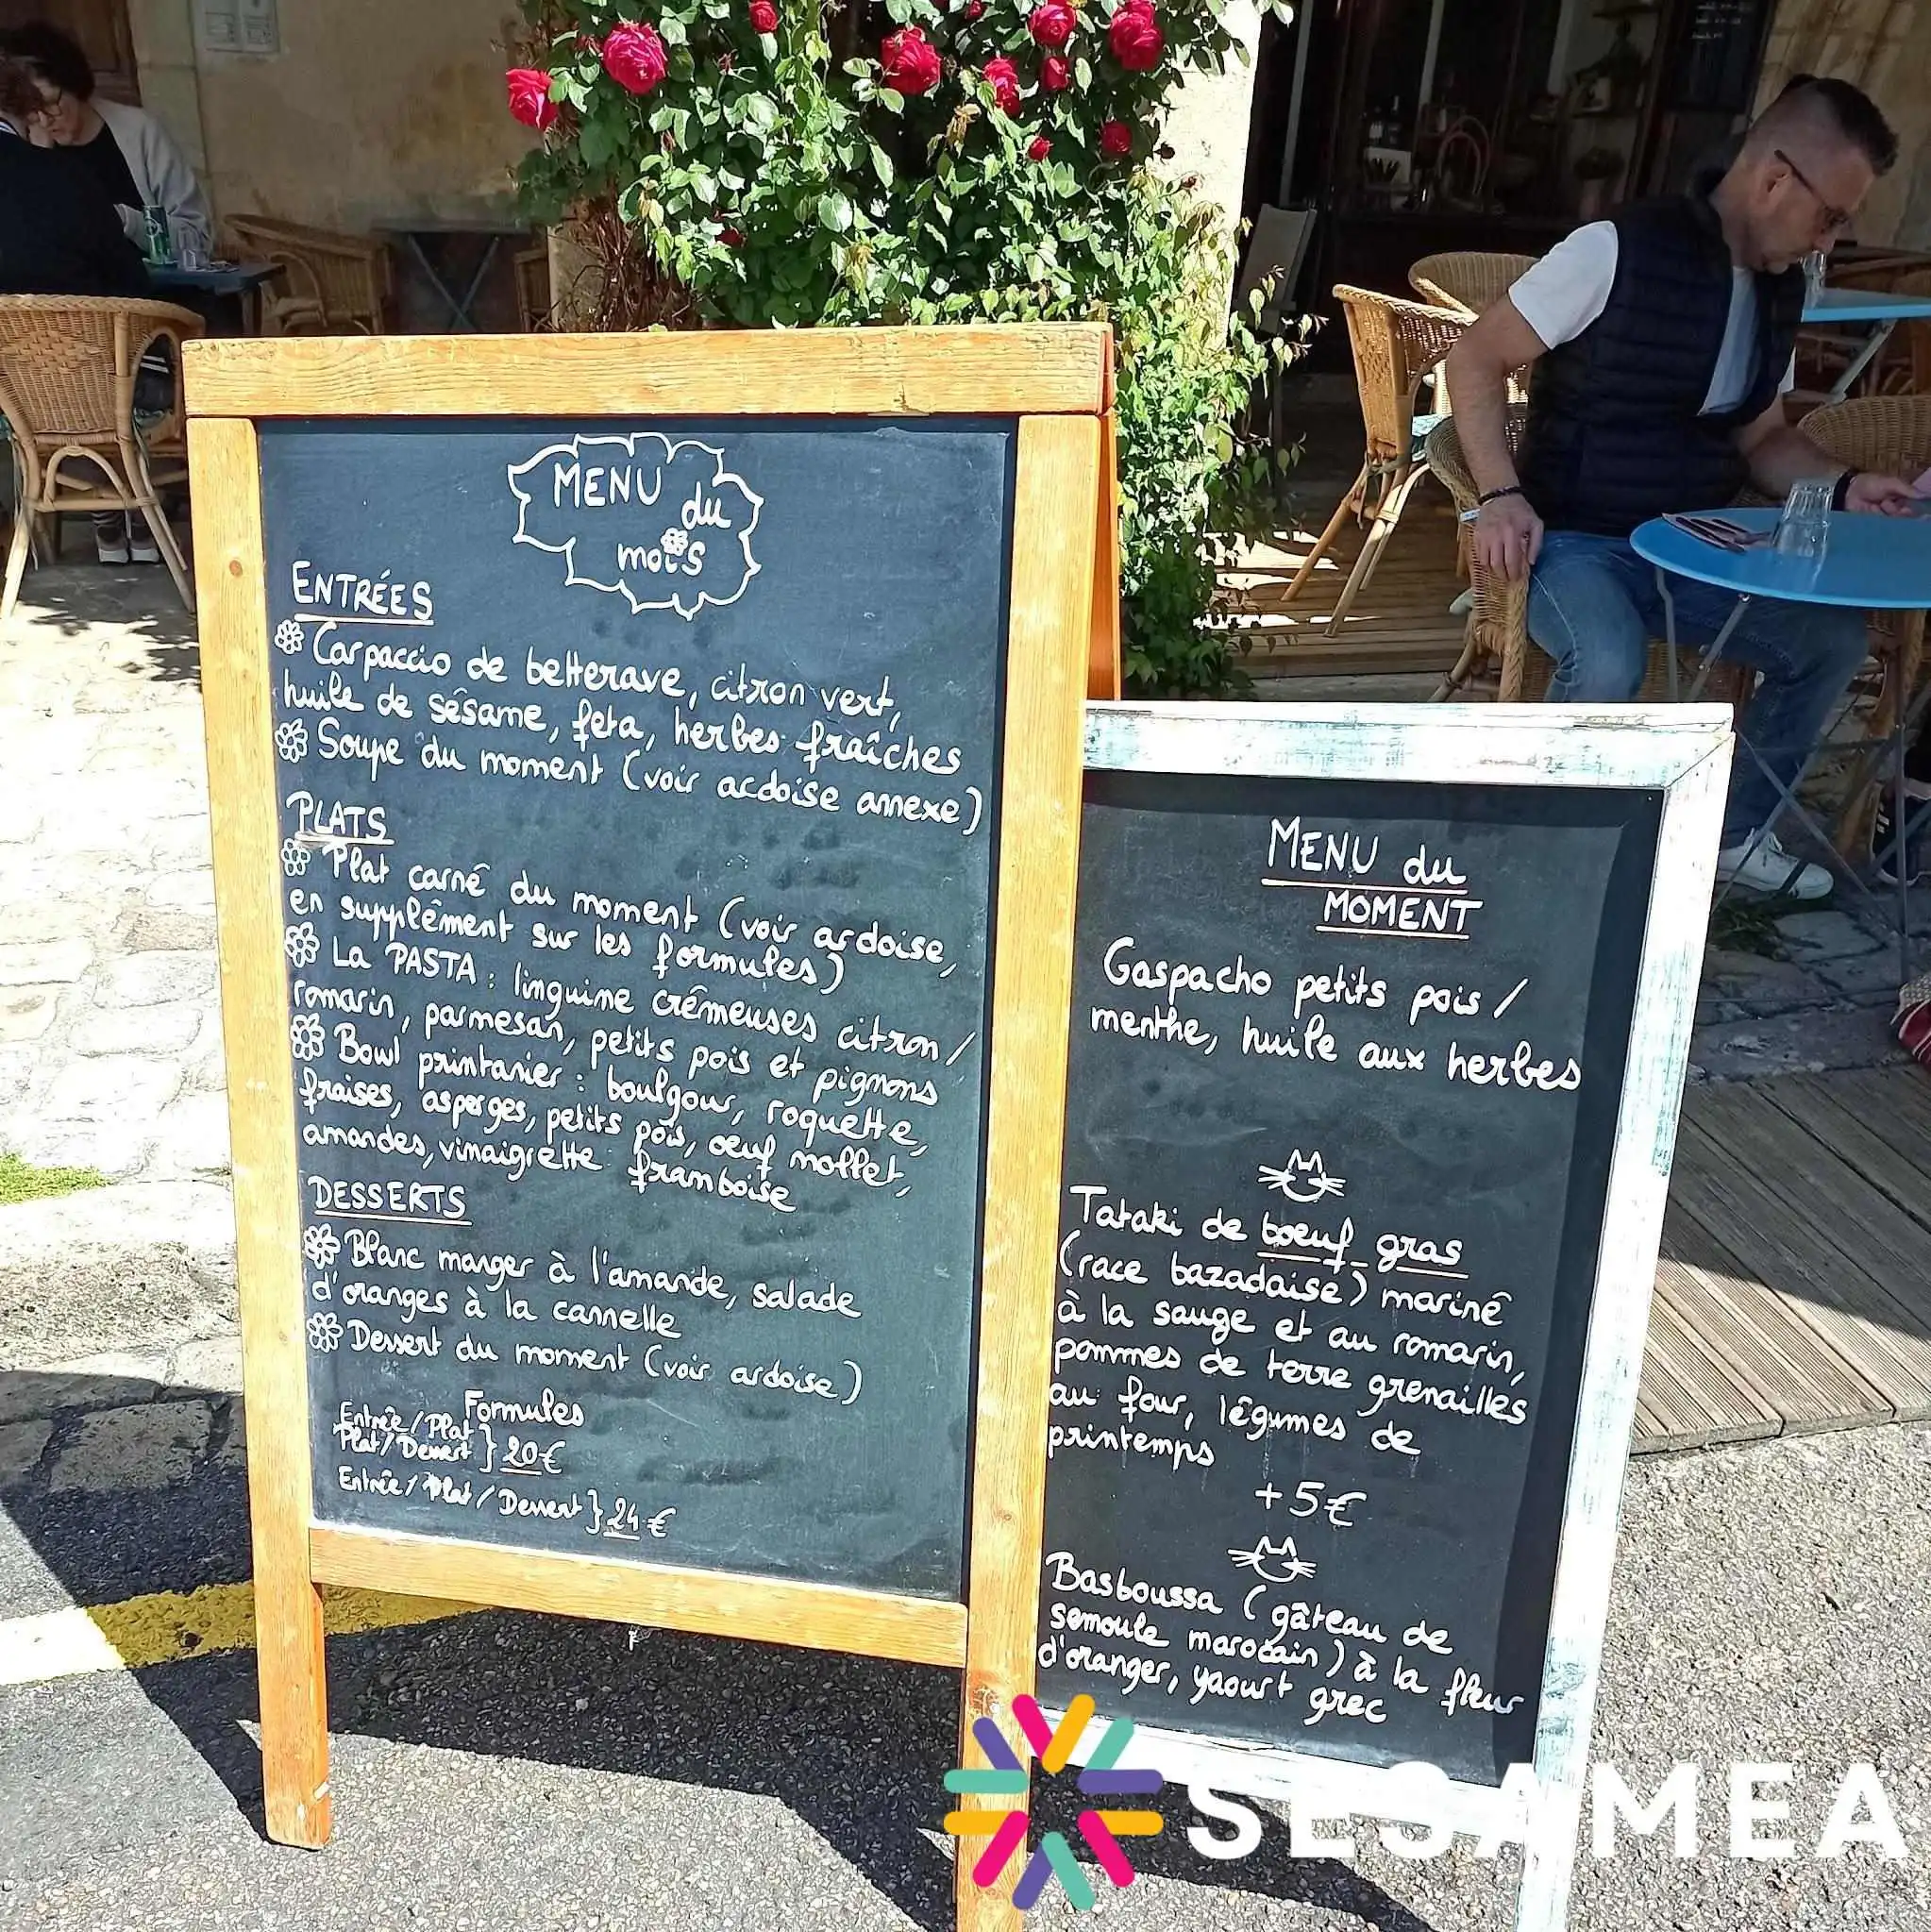 MENU du
mois
ENTRÉES
Carpaccio de betterave, citron vert,
huile de sésame, feta, herbes fraîches
Soupe du moment (voir ardoise annexe)
PLATS
Plat carné du moment (voir ardoise,
en supplément sur les formules)
La PASTA : linguine crémeuses citron/
romarin, parmesan, petits pois et pignons
Bowl printanier : boulgour, roquette,
fraises, asperges, petits pois, œuf mollet,
amandes, vinaigrette framboise
DESSERTS
Blanc manger à l'amande, salade
d'oranges à la cannelle
Dessert du moment (voir ardoise)
Formules
Entrée/Plat
Plat/Dessert } 20€
Entrée/Plat/Dessert } 24€
MENU du
MOMENT
Gaspacho petits pois/
menthe, huile aux herbes
Tataki de bœuf gras
(race bazadaise) mariné
à la sauge et au romarin,
pommes de terre grenailles
au four, légumes de
printemps
+5€
Basboussa (gâteau de
semoule marocain) à la fleur
d'oranger, yaourt grec
SESAMEA